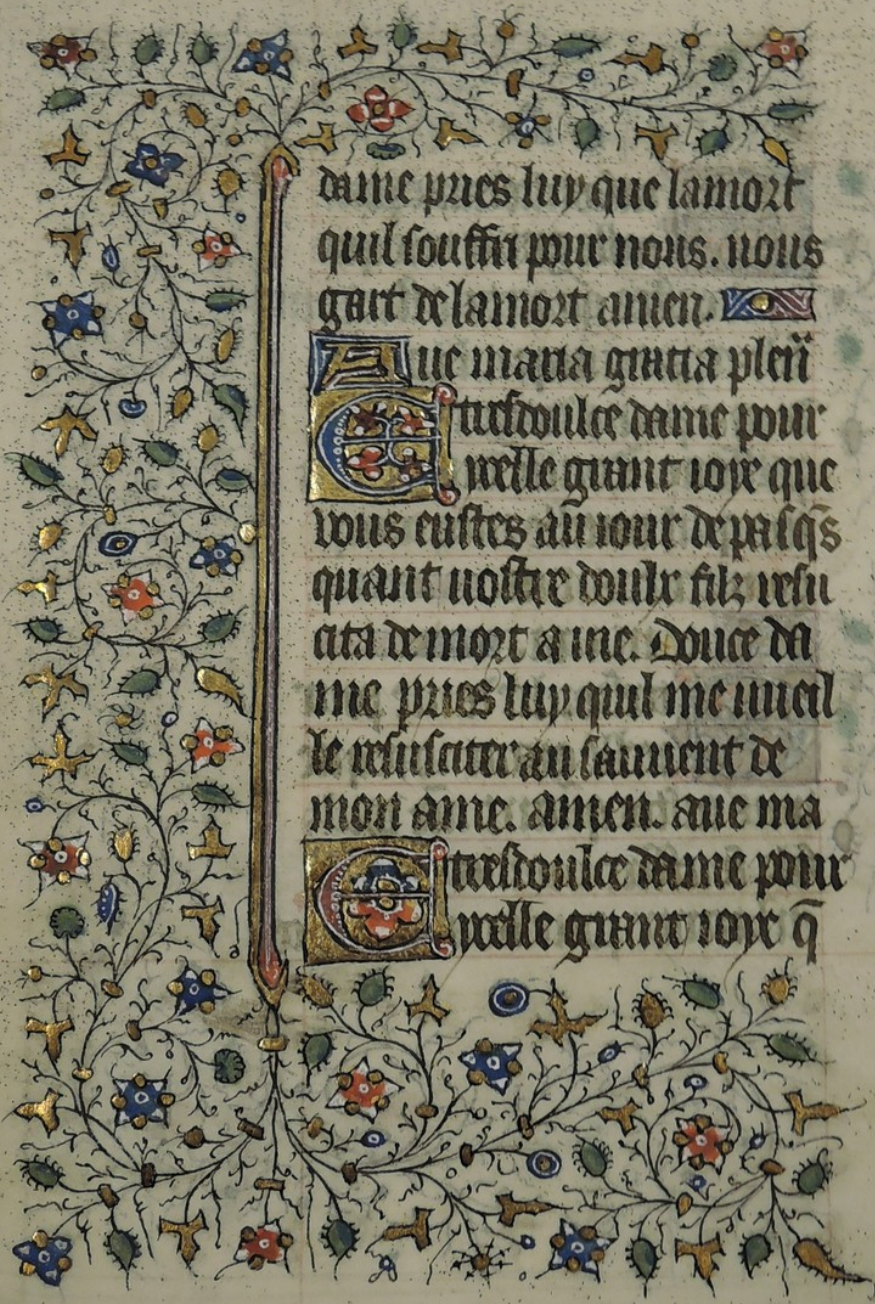 dame pries luy que lamort
quil souffri pour nous. nous
gart de lamort amen.
Aue maria gratia pleñ
E tresdoulce dame pour
ycelle grant ioye que
vous eustes au iour de pasqs̄
quant uostre doulx filz resu
cita de mort a uie. Douce da
me pries luy quil me uueil
le resusciter au sauuent de
mon ame. amen. aue ma
E tresdoulce dame pour
ycelle grant ioye q̄